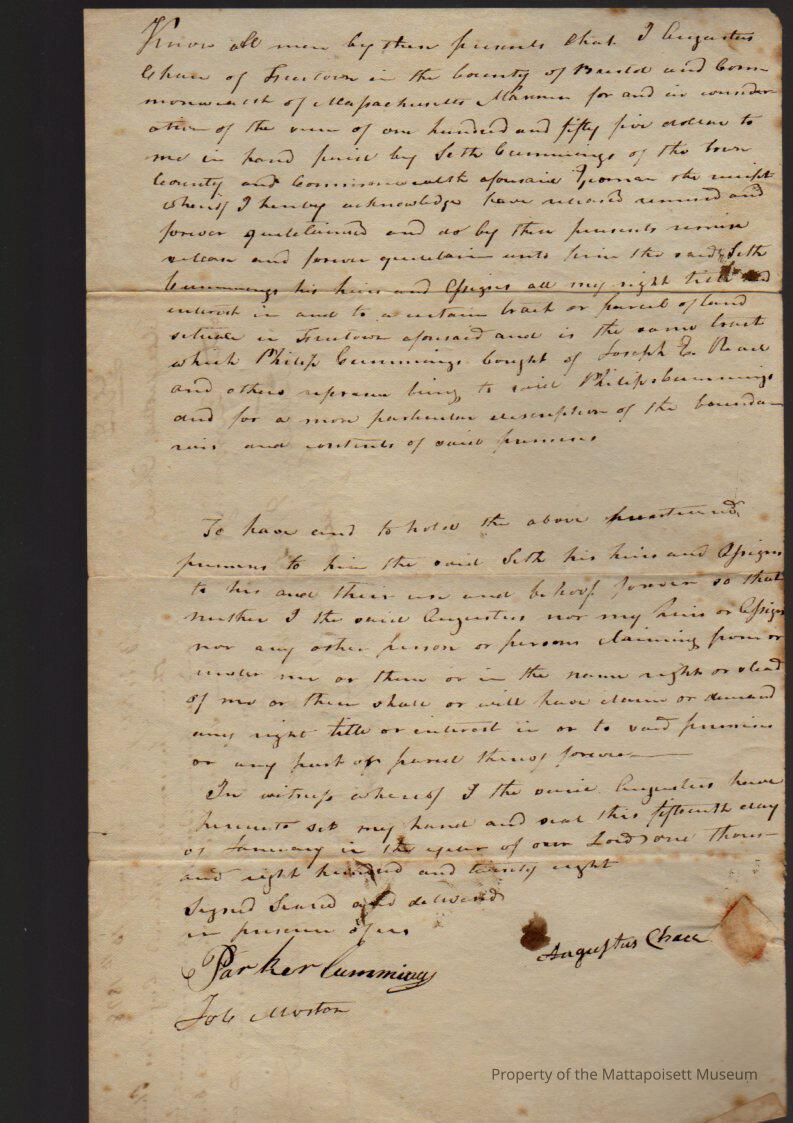 Know all men by these presents that I Augustus
Chace of Freetown in the County of Bristol and Com
monwealth of Massachusetts Mariner for and in consider
ation of the sum of one hundred and fifty five dollars to
me in hand paid by Seth Cummings of the town
County and Commonwealth aforesaid Yeoman the receipt
whereof I hereby acknowledge have released remised and
forever quitclaimed and do by these presents remise
release and forever quitclaim unto him the said Seth
Cummings his heirs and Assigns all my right title and
interest in and to a certain tract or parcel of land
situate in Freetown aforesaid and is the same tract
which Philip Cummings bought of Joseph E. Read
and others reference being to said Philips Cummings
deed for a more particular description of the bounda
ries and contents of said premises
To have and to hold the above
premises to him the said Seth his heirs and Assigns
to his and their use and behoof forever so that
neither I the said Augustus nor my heirs or Assigns
nor any other person or persons claiming from or
under me or them or in the name right or stead
of me or them shall or will have claim or demand
any right title or interest in or to said premises
or any part or parcel thereof forever
In witness whereof I the said Augustus have
hereunto set my hand and seal this fifteenth day
of January in the year of our Lord one thous
and eight hundred and twenty eight
Signed Sealed and delivered
in presence of us
Augustus Chace
Parker Cummings
Job Morton
Property of the Mattapoisett Museum